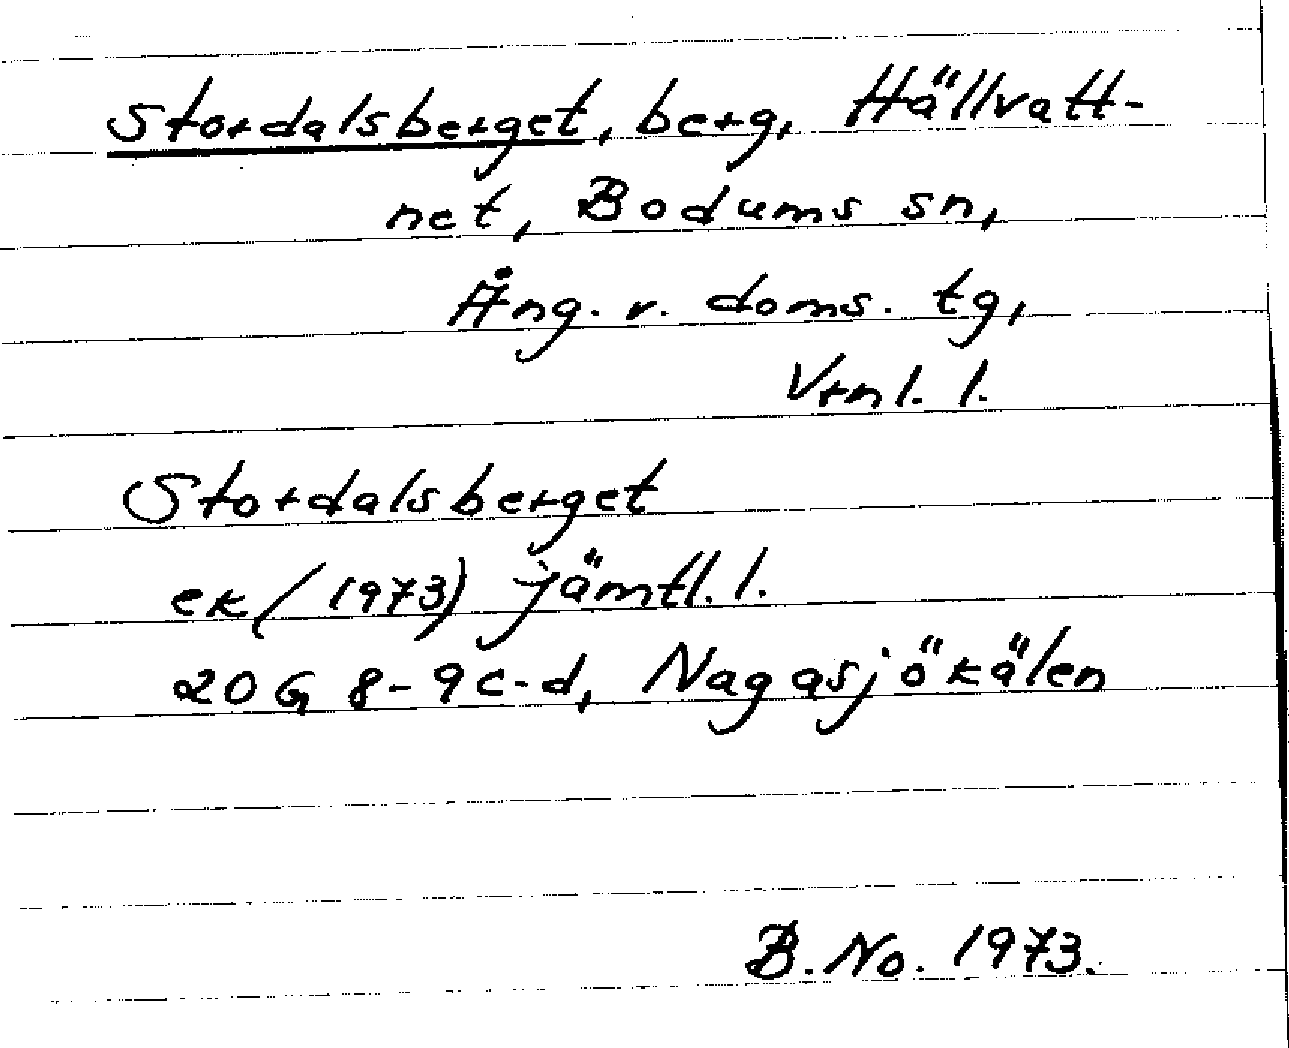 Stordalsberget, berg, Hällvatt-
net, Bodums sn,
Ång. v. doms. tg,
Vrnl. l.
Stordalsberget
ek/(1973) jämtl. l.
20 G 8-9c-d, Nagasjökälen
B. No. 1973.